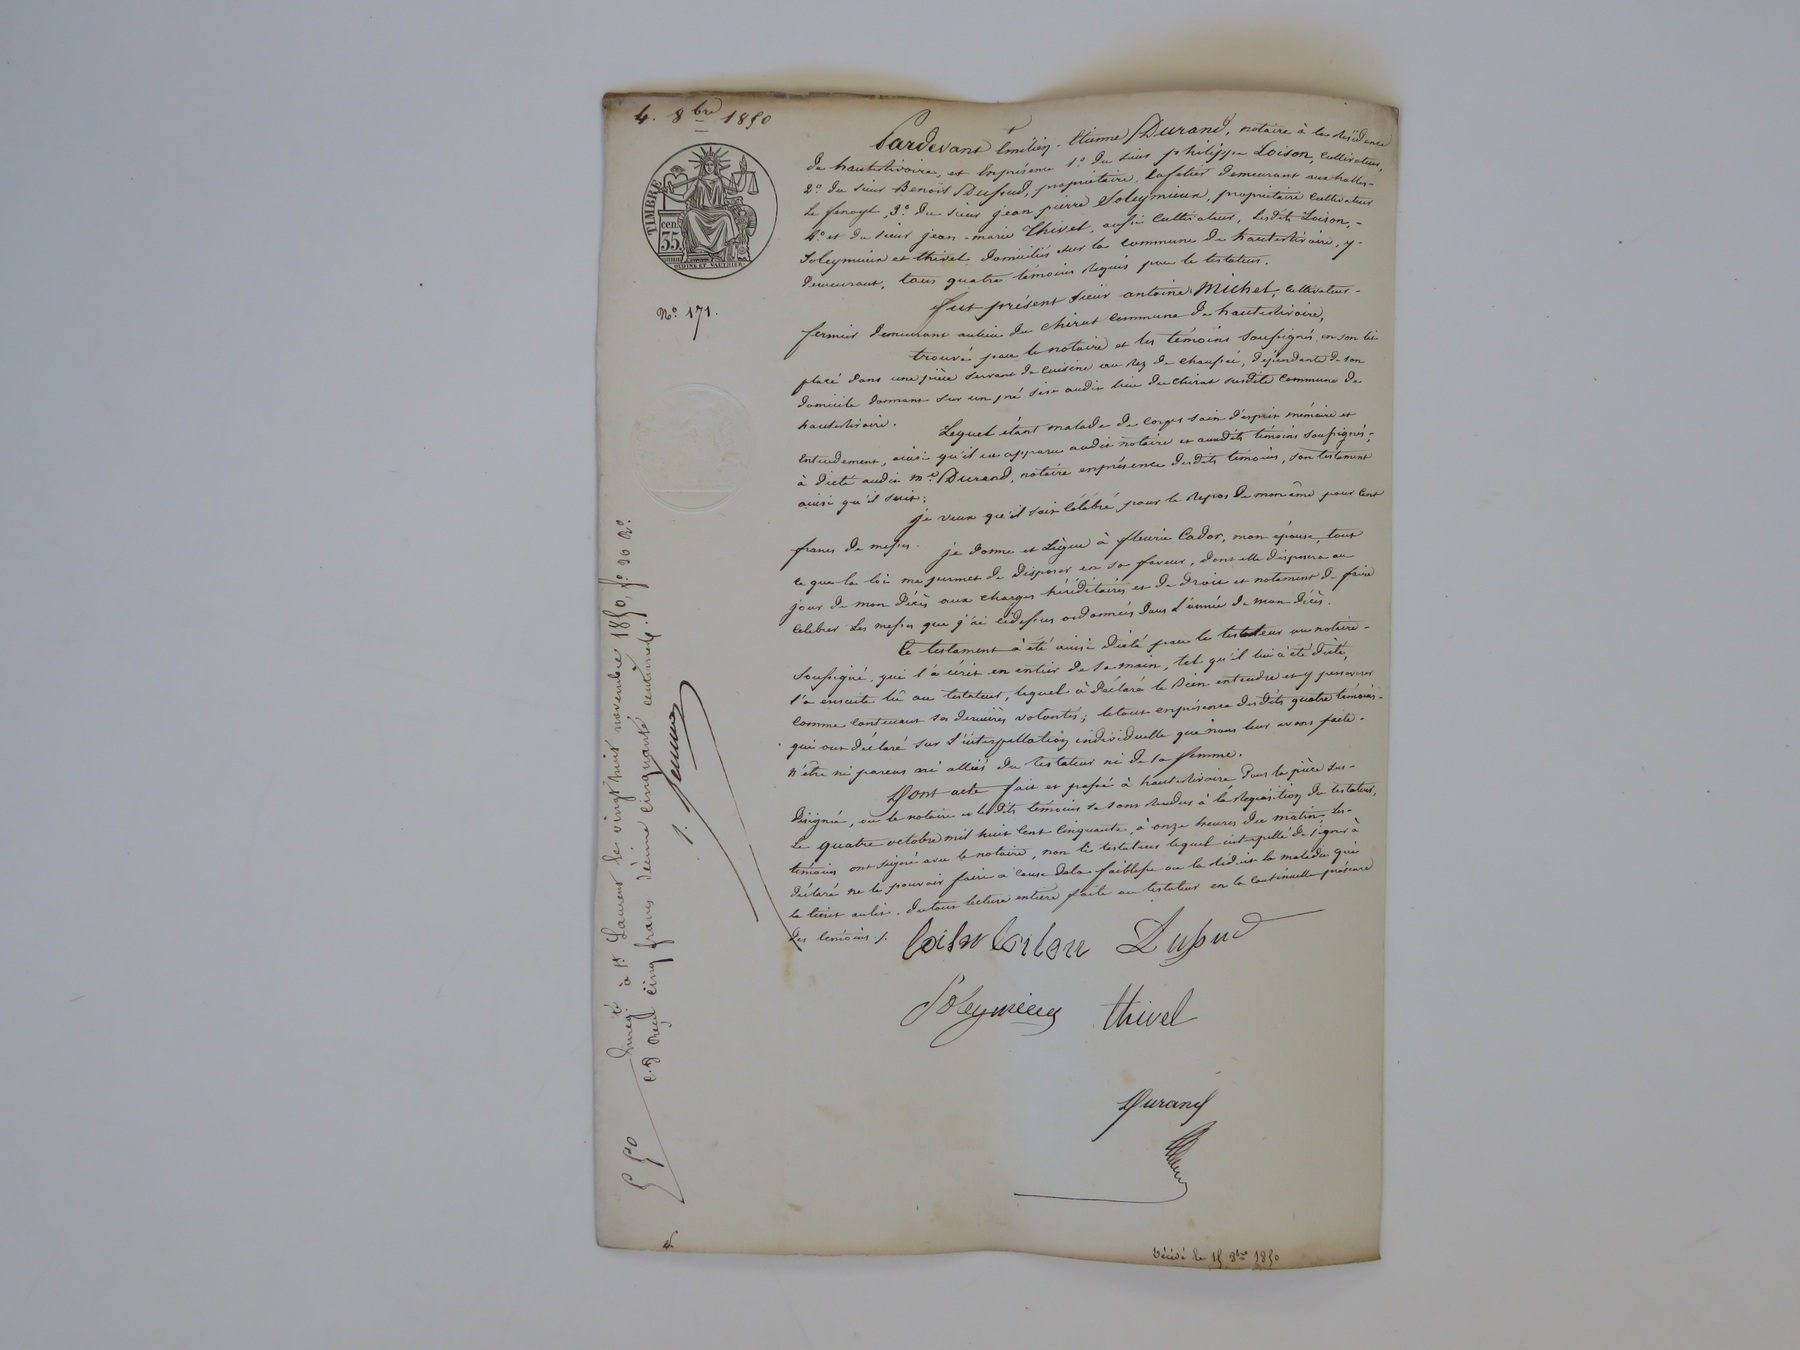 4. 8bre 1850
TIMBRE
cen.
35
OUDINÉ ET VAUTHIER
No. 171.
Pardevant Emilien-Etienne Durand, notaire à la Résidence
de hauterivoire, et Enprésence 1o. du sieur philippe Loison, cultivateur,
2o. du sieur Benoit Dufoud, propriétaire, cafetier demeurant aux halles-
le fenoyl, 3o. du sieur jean pierre Soleymieux, propriétaire cultivateur
4o. et du sieur jean-marie Thivel, aussi cultivateur, lesdits Loison,-
Soleymieux et thivel domiciliés sur la commune de hauterivoire, y-
demeurant, tous quatre témoins requis par le testateur.
fut présent sieur antoine Michel, cultivateur-
fermier demeurant aulieu du Chirat commune de hauterivoire,
trouvé par le notaire et les témoins soussignés en son lit
placé dans une pièce servant de cuisine au rez de chaussée, dépendante de son
domicile donnant sur un pré sis audit lieu du chirat susdite commune de
hauterivoire.
Lequel étant malade de corps sain d'esprit mémoire et
entendement, ainsi qu'il est apparu audit notaire et auxdits témoins soussignés,
à dicté audit me. Durand, notaire enprésence desdits témoins, son testament
ainsi qu'il suit:
je veux qu'il soit célébré pour le repos de mon âme pour cent
francs de messes.
je donne et Lègue à fleurie Cador, mon épouse, tout
ce que la loi me permet de disposer en sa faveur, dont elle disposera au
jour de mon décès aux charges héréditaires et de droit et notament de faire
celebrer les messes que j'ai cidessus ordonnées dans l'année de mon décès.
Ce testament à été ainsi dicté par le testateur au notaire-
soussigné, qui l'a écrit en entier de sa main, tel qu'il lui à été dicté,
l'a ensuite lû au testateur, lequel à déclaré le bien entendre et y perseverer
comme contenant ses dernières volontés; letout enprésence desdits quatre témoins-
qui ont déclaré sur l'interpellation individuelle que nous leur avons faite.
N'être ni parens ni alliés du testateur ni de sa femme.
Dont acte fait et passé à hauterivoire dans la pièce sus-
désignée, où le notaire et lesdits témoins se sont rendus à la Réquisition du testateur,
Le quatre octobre mil huit cent cinquante, à onze heures du matin. Les
témoins ont signé avec le notaire, non le testateur lequel interpellé de signer à
déclaré ne le pouvoir faire à cause dela faiblesse ou la réduit la maladie qui
le tient aulit. dutout lecture entière faite au testateur en la continuelle présence
des témoins./.
Loison Dufoud
Soleymieux thivel
Durand
Enregé. à St. Laurent le vingt huit novembre 1850, fo. 20 Ro.
c.8 reçu cinq francs décime cinquante centimes.
5 50
4.
Décédé le 15 9bre 1850